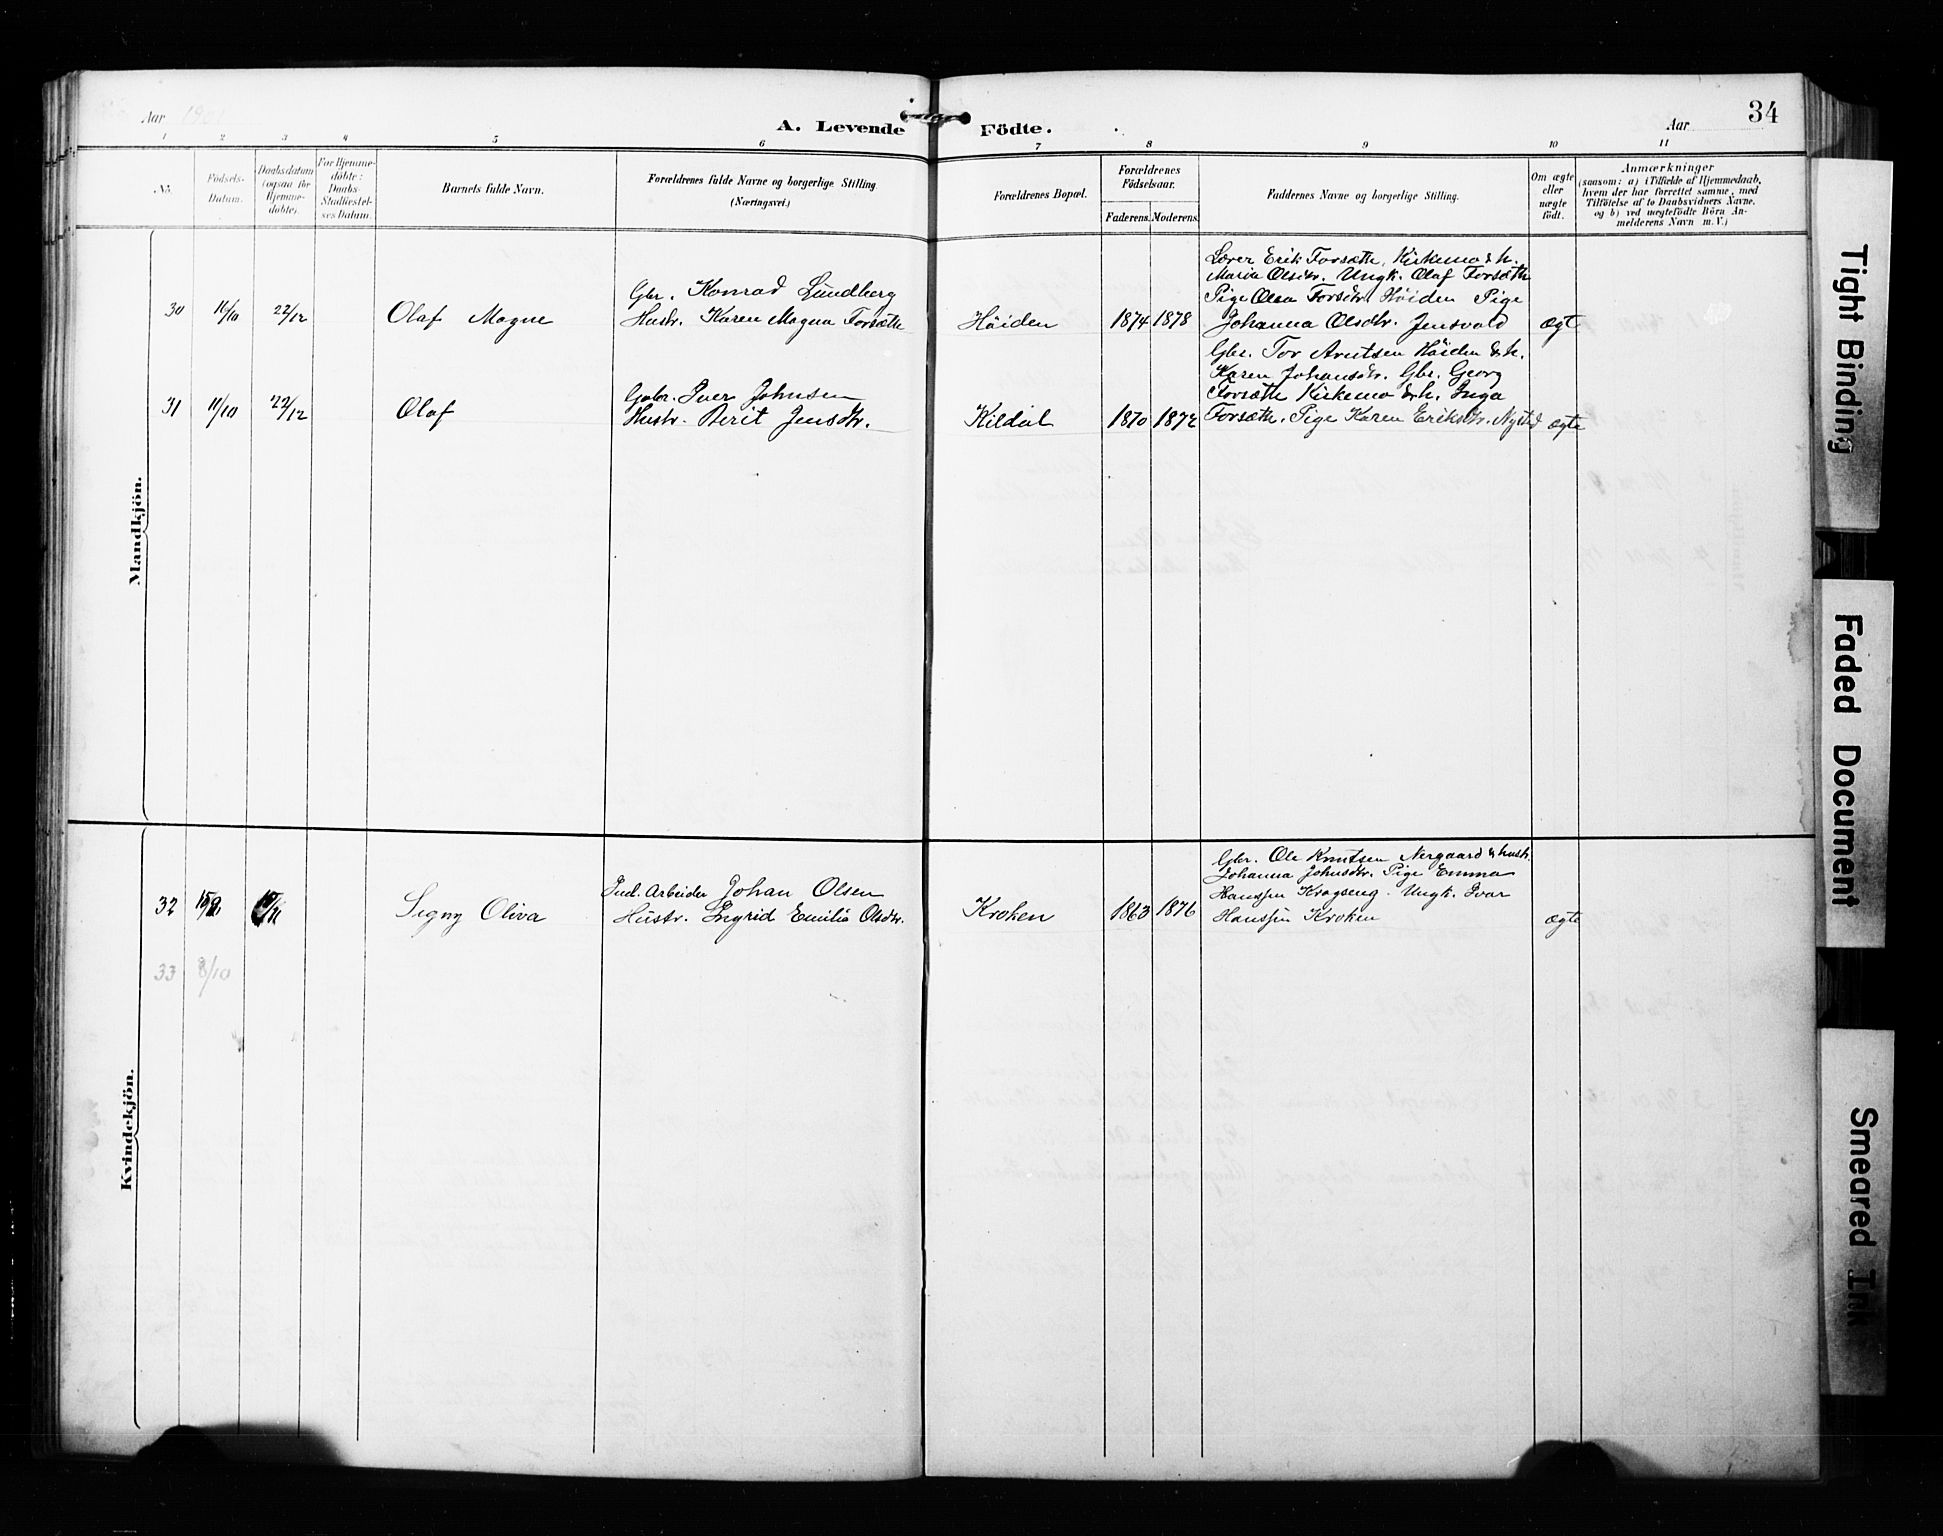 Aar 1901
A. Levende Födte.
Aar
34
1 2 3 4 5 6 7 8 9 10 11
No.
Födsels-
Datum.
Daabsdatum
(ogsaa for
Hjemme-
döbte)
For Hjemme-
döbte:
Daabs-
Stadfæstel-
ses Datum.
Barnets fulde Navn.
Forældrenes fulde Navne og borgerlige Stilling
(Næringsvei.)
Forældrenes Bopæl.
Forældrenes
Födselsaar.
Faderens. Moderens.
Faddernes Navne og borgerlige Stilling.
Om ægte
eller
uægte
födt.
Anmærkninger
(saasom: a) i Tilfælde af Hjemmedaab,
hvem der har forrettet samme, med
Tilföielse af to Daabsvidners Navne,
og b) ved uægtefödte Börn An-
melderens Navn m. V.)
Mandkjön.
30 11/10 22/12 Olaf Magne
Gbr. Konrad Lundberg
Hustr. Karen Magna Forsæth
Höiden 1874 1878
Lærer Erik Forsæth, Kirkemo & h.
Maria Olsdtr. Ungk. Olaf Forsæth
Pige Olea Forsdtr. Höiden Pige
Johanna Olsdtr. Jensvold
ægte
31 11/10 22/12 Olaf
Gbr. Iver Johnsen
Hustr. Berit Jensdtr.
Kildal 1870 1872
Gbr. Tor Arntsen Höiden & h.
Karen Johansdtr. Gbr. Georg
Forsæth Kirkemo & h. Inga
Forsæth. Pige Karen Eriksdtr. Nysted
ægte
Kvindekjön.
32 Signy Oliva
Ind. Arbeider Johan Olsen
Hustr. Ingrid Emilie Olsdtr.
Kroken 1863 1876
Gbr. Ole Knutsen Nergaard & hustr.
Johanna Johnsdtr. Pige Emma
Hanssen Kragseng. Ungk. Ivar
Hanssen Kroken
ægte
33 8/10
Tight Binding
Faded Document
Smeared Ink